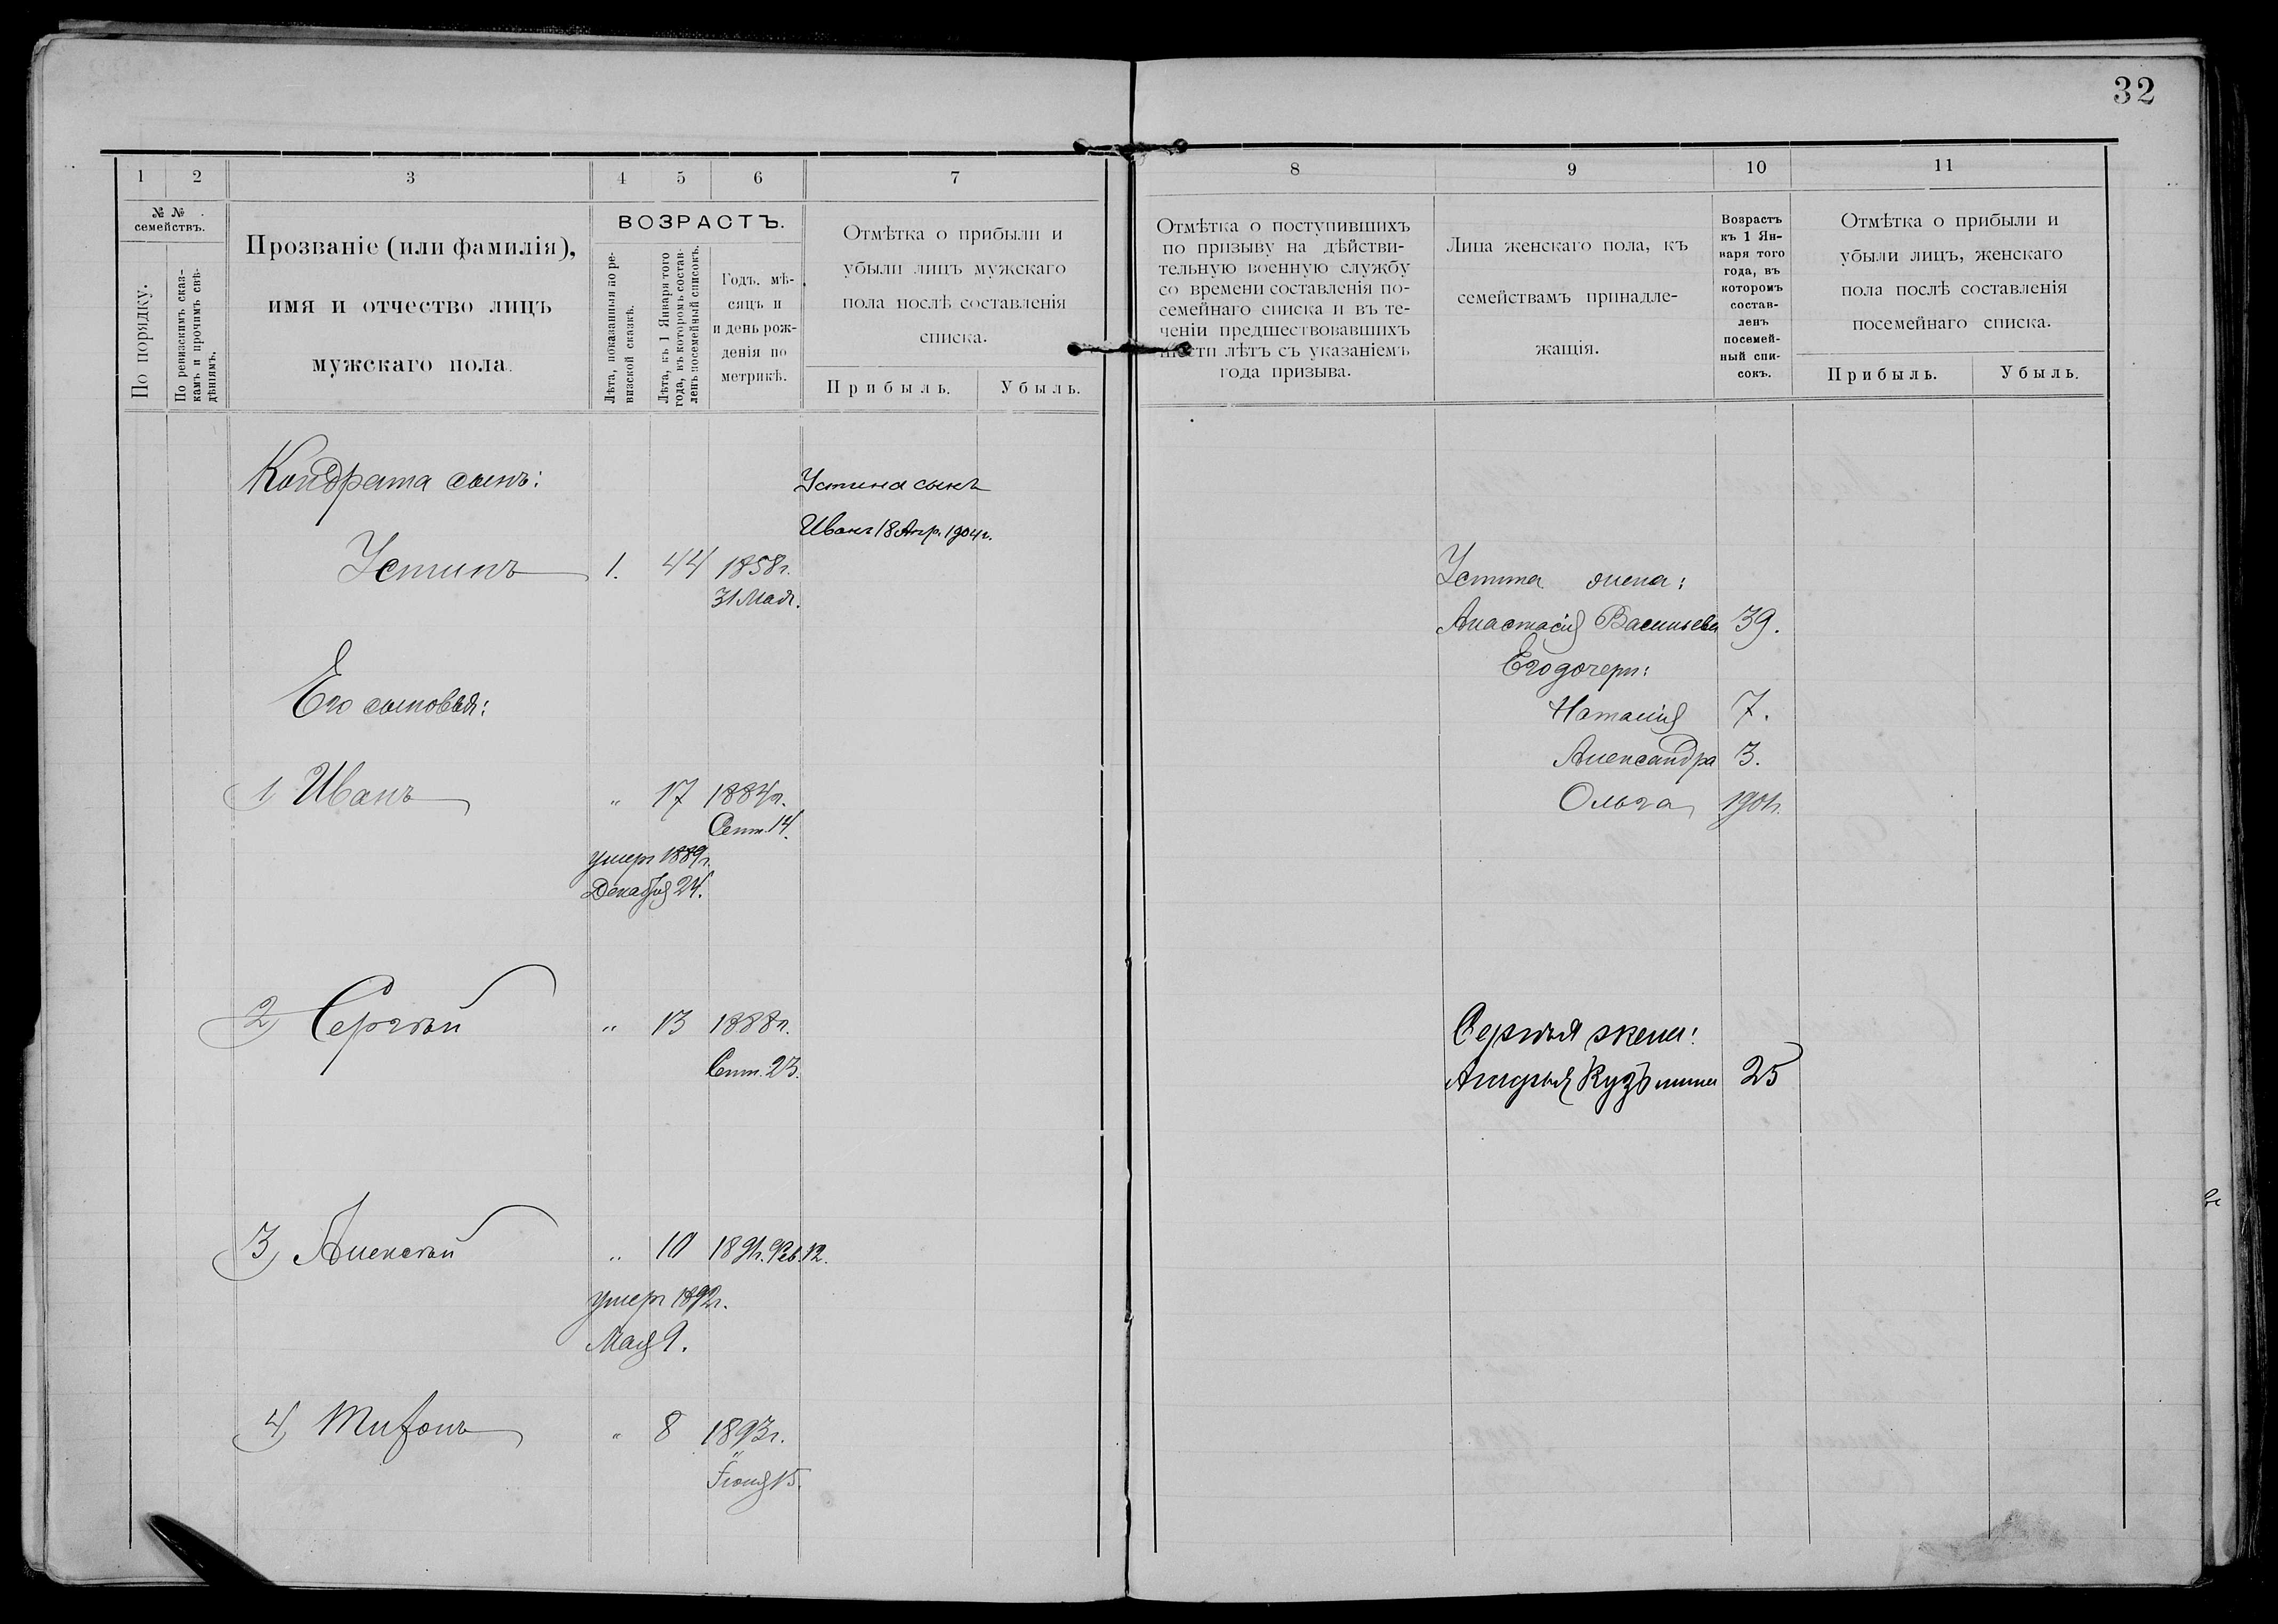 32
1 2 3 4 5 6 7
№ №
семействъ.
По порядку.
По ревизскимъ сказ-
камъ и прочимъ свѣ-
дѣніямъ.
Прозваніе (или фамилія),
имя и отчество лицъ
мужскаго пола.
ВОЗРАСТЪ.
Лѣта, показанныя по ре-
визской сказкѣ.
Лѣта, къ 1 Января того
года, въ которомъ состав-
ленъ посемейный списокъ.
Годъ, мѣ-
сяцъ и
и день рож-
денія по
метрикѣ.
Отмѣтка о прибыли и
убыли лицъ мужскаго
пола послѣ составленія
списка.
Прибыль. Убыль.
Кондрата сынъ:
Устина сынъ
Иванъ 18 Апр. 1904 г.
Устинъ 1. 44 1858 г.
31 Мая.
Его сыновья:
1) Иванъ " 17 1884 г.
Сент. 14.
умеръ 1889 г.
Декабря 24.
2) Сергѣй " 13 1888 г.
Сент. 23.
3) Алексѣй " 10 1891 г. Фев. 12.
умеръ 1892 г.
Мая 9.
4) Тифонъ " 8 1893 г.
Іюня 15.
8 9 10 11
Отмѣтка о поступившихъ
по призыву на дѣйстви-
тельную военную службу
со времени составленія по-
семейнаго списка и въ те-
ченіи предшествовавшихъ
шести лѣтъ съ указаніемъ
года призыва.
Лица женскаго пола, къ
семействамъ принадле-
жащія.
Возрастъ
къ 1 Ян-
варя того
года, въ
которомъ
состав-
ленъ
посемей-
ный спи-
сокъ.
Отмѣтка о прибыли и
убыли лицъ, женскаго
пола послѣ составленія
посемейнаго списка.
Прибыль. Убыль.
Устина жена:
Анастасія Васильева 39.
Его дочери:
Наталія 7.
Александра 3.
Ольга 1901 г.
Сергѣя жена:
Агафья Кузьмина 25